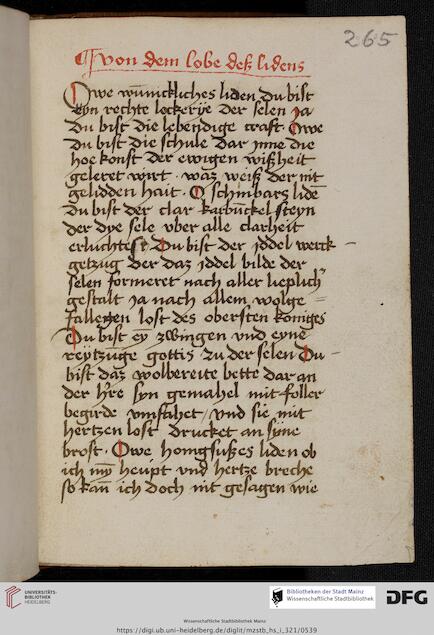 265
von dem lobe deß lidens
Owe wūnickliches liden du bist
eyn rechte leckerije der selen ja
Du bist die lebendige craft Owe
du bist die schule dar jnne die
hoe konst der ewigen wißheit
geleret wirt · waz weiß der nit
gelidden hait · O schinbars lidē
du bist der clar karbūckel steyn
der dye sele vber alle clarheit
erluchtest Du bist der jddel werck
getzug der daz jddel bilde der
selen formeret nach aller lieplich
gestalt ja nach allem wolge
fallenn lost des obersten koniges
Du bist eȳ zwingen vnd eyne
reytzuge gottis · zu der selen Du
bist daz wolbereite bette dar an
der h're syn gemahel mit foller
begirde vmfahet / vnd sie mit
hertzen lost drucket an syne
brost · Owe honigsußes liden ob
ich mȳ heupt vnd hertze breche
so kan̄ ich doch nit gesagen wie
UNIVERSITÄTS-
BIBLIOTHEK
HEIDELBERG
Bibliotheken der Stadt Mainz
Wissenschaftliche Stadtbibliothek
DFG
Wissenschaftliche Stadtbibliothek Mainz
https://digi.ub.uni-heidelberg.de/diglit/mzstb_hs_i_321/0539